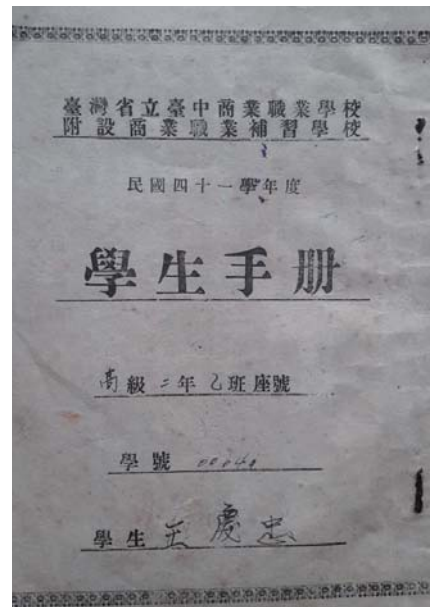 臺灣省立臺中商業職業學校
附設商業職業補習學校
民國四十一學年度
學生手册
高級二年乙班座號
學號
學生 王慶忠